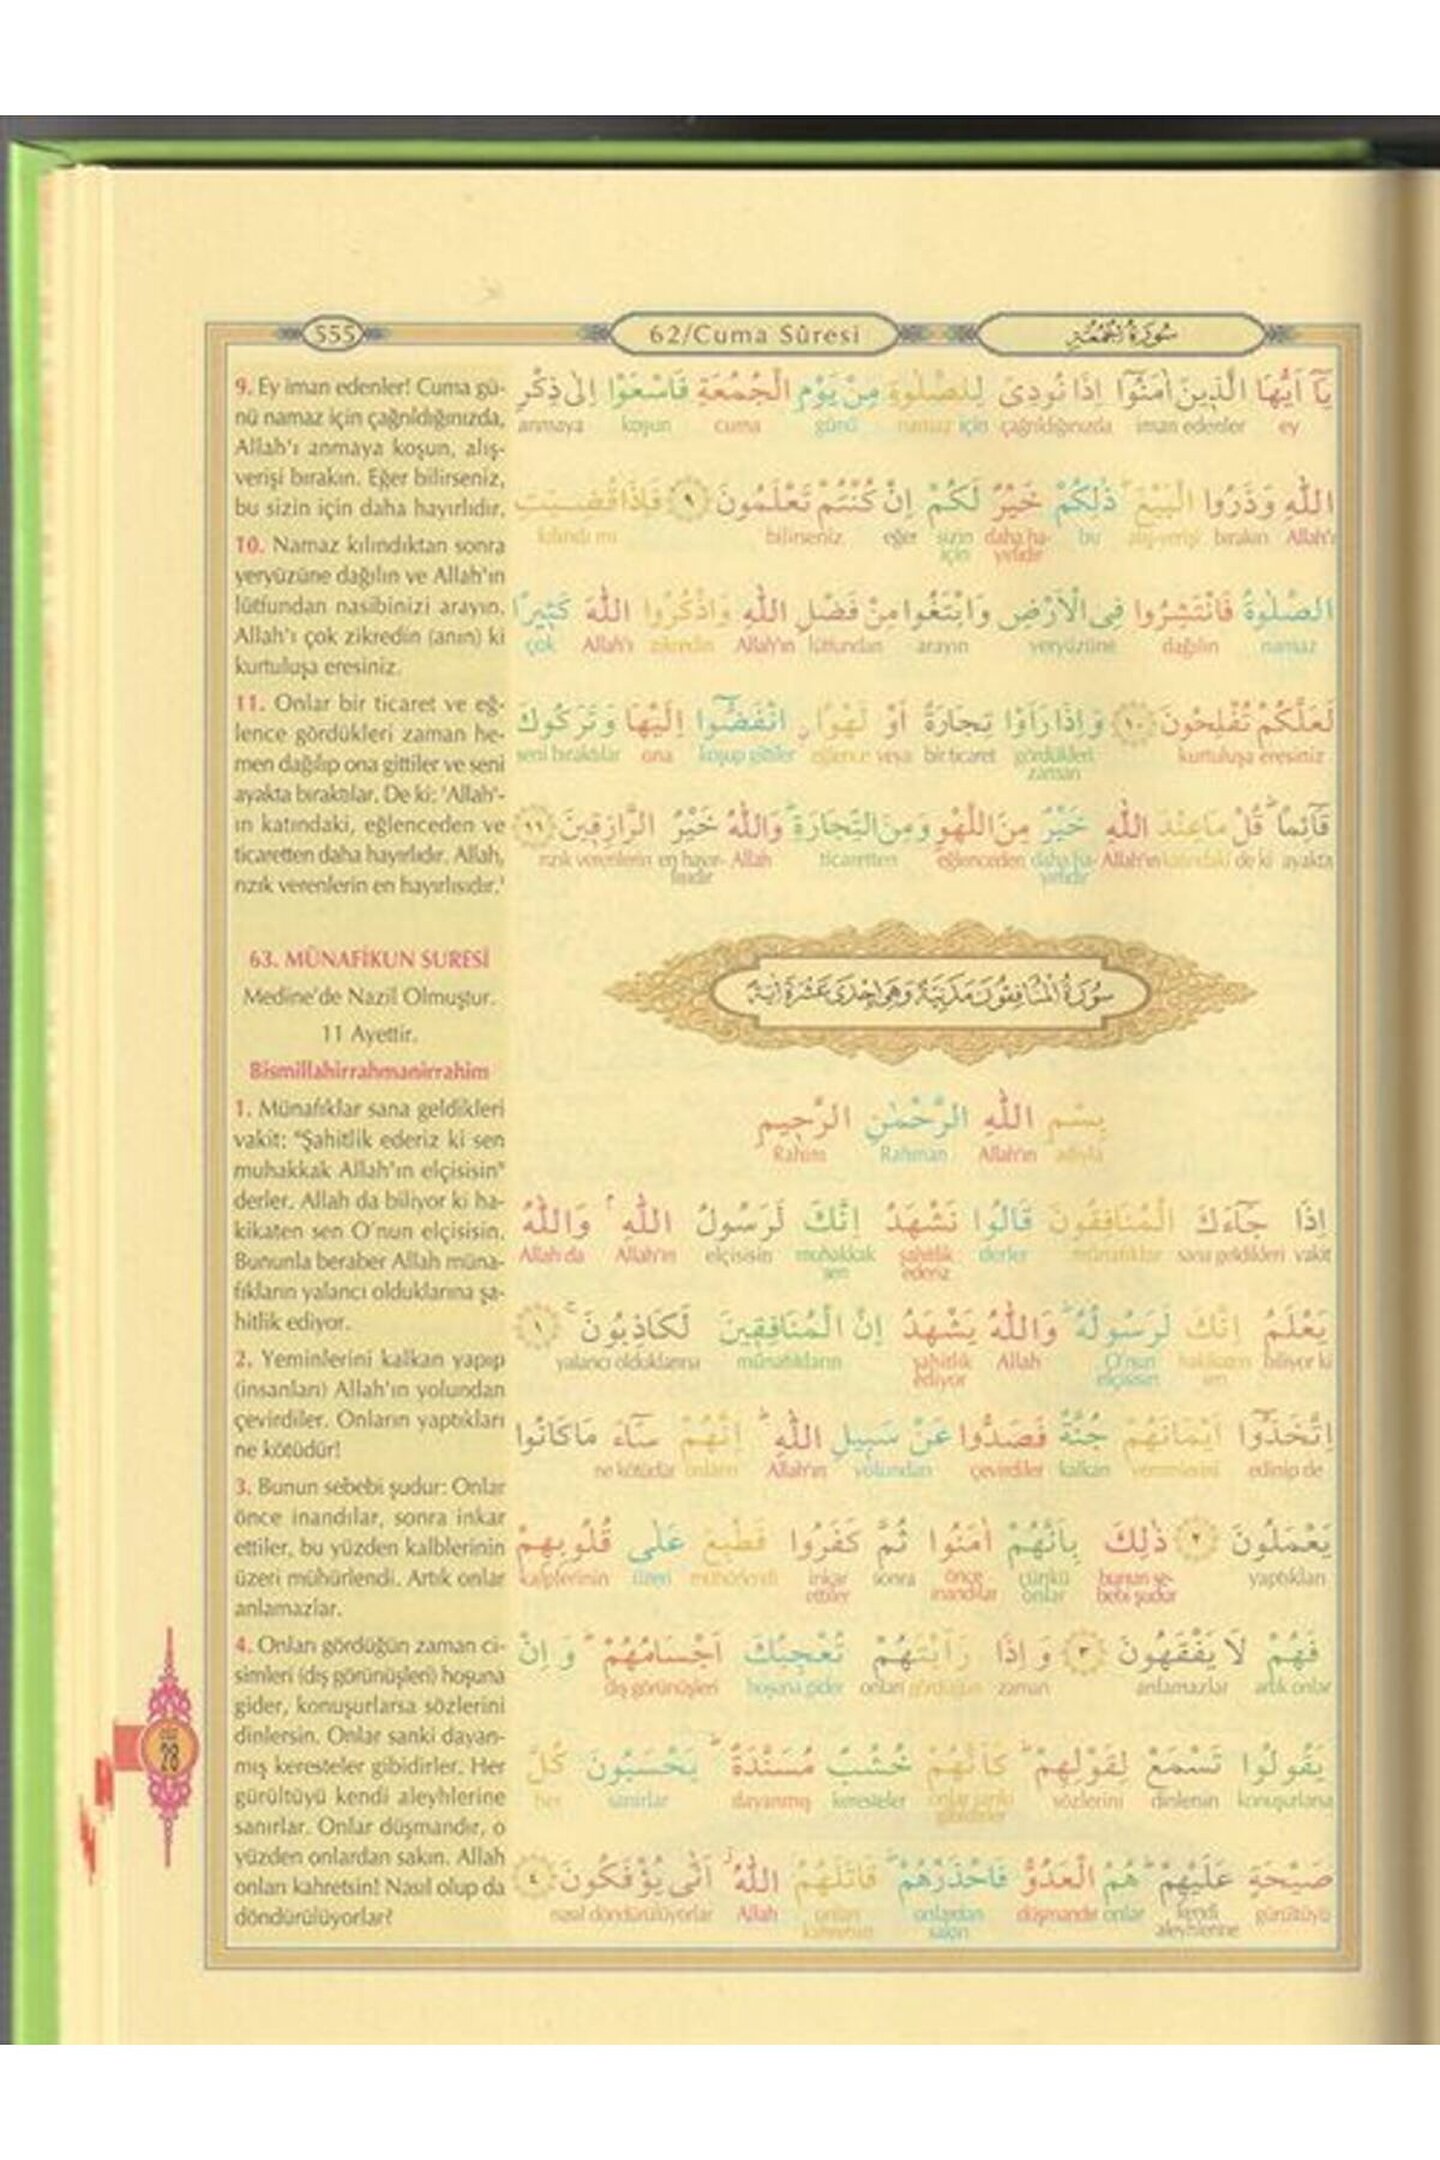 555
62/Cuma Sûresi
سُورَةُ الْجُمُعَةِ
9. Ey iman edenler! Cuma gü-
nü namaz için çağrıldığınızda,
Allah'ı anmaya koşun, alış-
verişi bırakın. Eğer bilirseniz,
bu sizin için daha hayırlıdır.
10. Namaz kılındıktan sonra
yeryüzüne dağılın ve Allah'ın
lütfundan nasibinizi arayın.
Allah'ı çok zikredin (anın) ki
kurtuluşa eresiniz.
11. Onlar bir ticaret ve eğ-
lence gördükleri zaman he-
men dağılıp ona gittiler ve seni
ayakta bıraktılar. De ki: 'Allah'-
ın katındaki, eğlenceden ve
ticaretten daha hayırlıdır. Allah,
rızık verenlerin en hayırlısıdır.'
63. MÜNAFİKUN SURESİ
Medine'de Nazil Olmuştur.
11 Ayettir.
Bismillahirrahmanirrahim
1. Münafıklar sana geldikleri
vakit: "Şahitlik ederiz ki sen
muhakkak Allah'ın elçisisin"
derler. Allah da biliyor ki ha-
kikaten sen O'nun elçisisin.
Bununla beraber Allah müna-
fıkların yalancı olduklarına şa-
hitlik ediyor.
2. Yeminlerini kalkan yapıp
(insanları) Allah'ın yolundan
çevirdiler. Onların yaptıkları
ne kötüdür!
3. Bunun sebebi şudur: Onlar
önce inandılar, sonra inkar
ettiler, bu yüzden kalblerinin
üzeri mühürlendi. Artık onlar
anlamazlar.
4. Onları gördüğün zaman ci-
simleri (dış görünüşleri) hoşuna
gider, konuşurlarsa sözlerini
dinlersin. Onlar sanki dayan-
mış keresteler gibidirler. Her
gürültüyü kendi aleyhlerine
sanırlar. Onlar düşmandır, o
yüzden onlardan sakın. Allah
onları kahretsin! Nasıl olup da
döndürülüyorlar?
يَٓا اَيُّهَا الَّذٖينَ اٰمَنُٓوا اِذَا نُودِيَ لِلصَّلٰوةِ مِنْ يَوْمِ الْجُمُعَةِ فَاسْعَوْا اِلٰى ذِكْرِ
anmaya koşun cuma günü namaz için çağrıldığınızda iman edenler ey
اللّٰهِ وَذَرُوا الْبَيْعَۜ ذٰلِكُمْ خَيْرٌ لَكُمْ اِنْ كُنْتُمْ تَعْلَمُونَ ﴿٩﴾ فَاِذَا قُضِيَتِ
kılındı mı bilirseniz eğer sizin daha ha- bu alış-verişi bırakın Allah'ı
için yırlıdır
الصَّلٰوةُ فَانْتَشِرُوا فِي الْاَرْضِ وَابْتَغُوا مِنْ فَضْلِ اللّٰهِ وَاذْكُرُوا اللّٰهَ كَثٖيرًا
çok Allah'ı zikredin Allah'ın lütfundan arayın yeryüzüne dağılın namaz
لَعَلَّكُمْ تُفْلِحُونَ ﴿١٠﴾ وَاِذَا رَاَوْا تِجَارَةً اَوْ لَهْوًاۨ انْفَضُّٓوا اِلَيْهَا وَتَرَكُوكَ
seni bıraktılar ona koşup gittiler eğlence veya bir ticaret gördükleri kurtuluşa eresiniz
zaman
قَٓائِمًاۜ قُلْ مَا عِنْدَ اللّٰهِ خَيْرٌ مِنَ اللَّهْوِ وَمِنَ التِّجَارَةِۜ وَاللّٰهُ خَيْرُ الرَّازِقٖينَ ﴿١١﴾
rızık verenlerin en hayır- Allah ticaretten eğlenceden daha ha- Allah'ın katındaki de ki ayakta
lısıdır yırlıdır
سُورَةُ الْمُنَافِقُونَ مَدَنِيَّةٌ وَهِيَ اِحْدٰى عَشْرَةَ اٰيَةً
بِسْمِ اللّٰهِ الرَّحْمٰنِ الرَّحٖيمِ
Rahim Rahman Allah'ın adıyla
اِذَا جَٓاءَكَ الْمُنَافِقُونَ قَالُوا نَشْهَدُ اِنَّكَ لَرَسُولُ اللّٰهِۢ وَاللّٰهُ
Allah da Allah'ın elçisisin muhakkak şahitlik derler münafıklar sana geldikleri vakit
sen ederiz
يَعْلَمُ اِنَّكَ لَرَسُولُهُۜ وَاللّٰهُ يَشْهَدُ اِنَّ الْمُنَافِقٖينَ لَكَاذِبُونَۚ ﴿١﴾
yalancı olduklarına münafıkların şahitlik Allah O'nun hakikaten biliyor ki
ediyor elçisisin sen
اِتَّخَذُٓوا اَيْمَانَهُمْ جُنَّةً فَصَدُّوا عَنْ سَبٖيلِ اللّٰهِۜ اِنَّهُمْ سَٓاءَ مَا كَانُوا
ne kötüdür onların Allah'ın yolundan çevirdiler kalkan yeminlerini edinip de
يَعْمَلُونَ ﴿٢﴾ ذٰلِكَ بِاَنَّهُمْ اٰمَنُوا ثُمَّ كَفَرُوا فَطُبِعَ عَلٰى قُلُوبِهِمْ
kalplerinin üzeri mühürlendi inkar sonra önce çünkü bunun se- yaptıkları
ettiler inandılar onlar bebi şudur
فَهُمْ لَا يَفْقَهُونَ ﴿٣﴾ وَاِذَا رَاَيْتَهُمْ تُعْجِبُكَ اَجْسَامُهُمْۜ وَاِنْ
dış görünüşleri hoşuna gider onları gördüğün zaman anlamazlar artık onlar
يَقُولُوا تَسْمَعْ لِقَوْلِهِمْۜ كَاَنَّهُمْ خُشُبٌ مُسَنَّدَةٌۜ يَحْسَبُونَ كُلَّ
her sanırlar dayanmış keresteler onlar sanki sözlerini dinlersin konuşurlarsa
gibidirler
صَيْحَةٍ عَلَيْهِمْۜ هُمُ الْعَدُوُّ فَاحْذَرْهُمْۜ قَاتَلَهُمُ اللّٰهُۘ اَنّٰى يُؤْفَكُونَ ﴿٤﴾
nasıl döndürülüyorlar Allah onları onlardan düşmandır onlar kendi gürültüyü
kahretsin sakın aleyhlerine
CÜZ
28